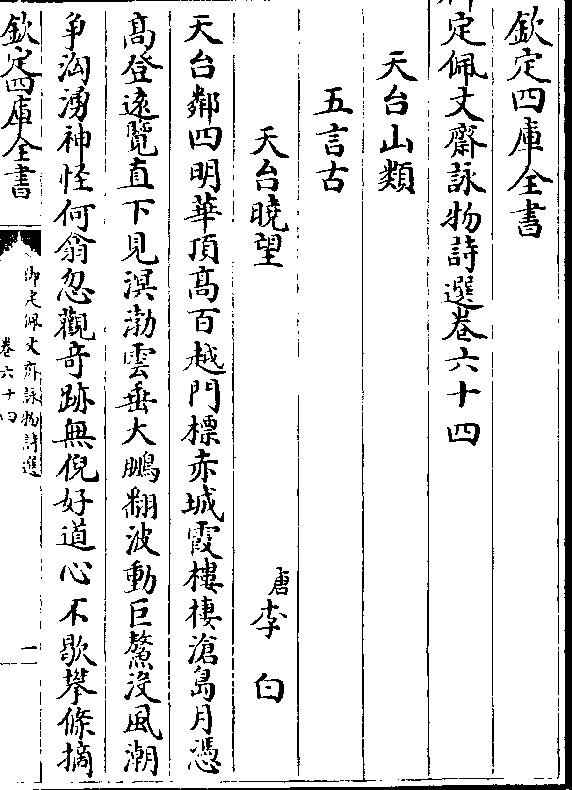 欽定四庫全書
御定佩文齋詠物詩選卷六十四
天台山類
五言古
天台曉望
唐李白
天台鄰四明華頂高百越門標赤城霞樓棲滄島月憑
高登遠覽直下見溟渤雲垂大鵬翻波動巨鰲沒風潮
爭洶湧神怪何翕忽觀奇跡無倪好道心不歇攀條摘
欽定四庫全書
御定佩文齋詠物詩選
卷六十四
一